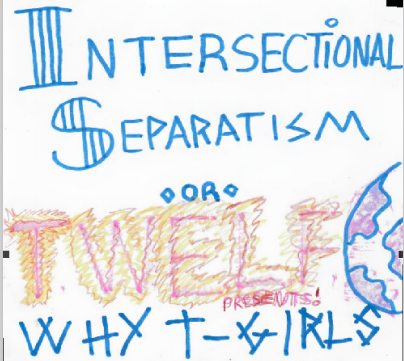 INTERSECTIONAL
SEPARATISM
◇OR◇
TWELF
PRESENTS!
WHY T-GIRLS